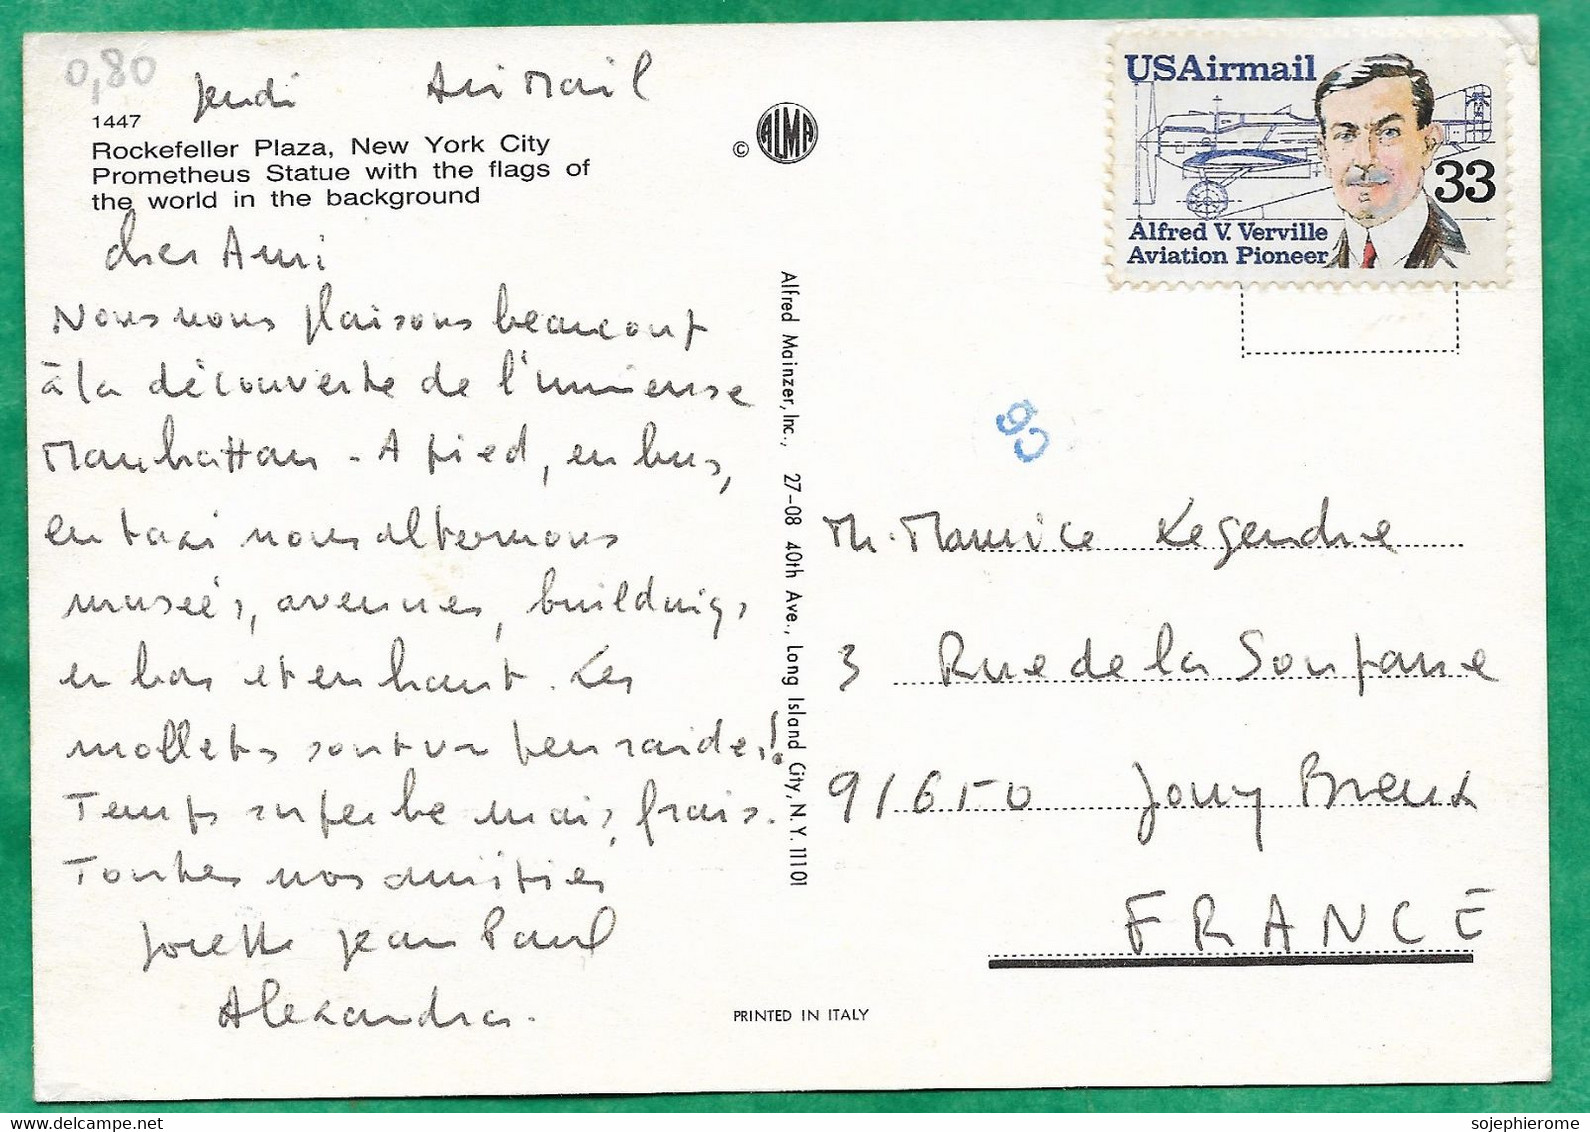 0,80
Jeudi Air Mail
1447
Rockefeller Plaza, New York City
Prometheus Statue with the flags of
the world in the background
© ALMA
USAirmail
33
Alfred V. Verville
Aviation Pioneer
Chers Amis
Nous nous plaisons beaucoup
à la découverte de l'immense
Manhattan - A pied, en bus,
en taxi nous alternons
musées, avenues, buildings
en bas et en haut. Les
mollets sont un peu raides!
Temps superbe mais frais.
Toutes nos amitiés
Josette Jean Paul
Alexandra.
Alfred Mainzer, Inc., 27-08 40th Ave., Long Island City, N.Y. 11101
M. Maurice Legendre
3 Rue de la Sontane
91650 Jouy Breux
FRANCE
PRINTED IN ITALY
sojephierome